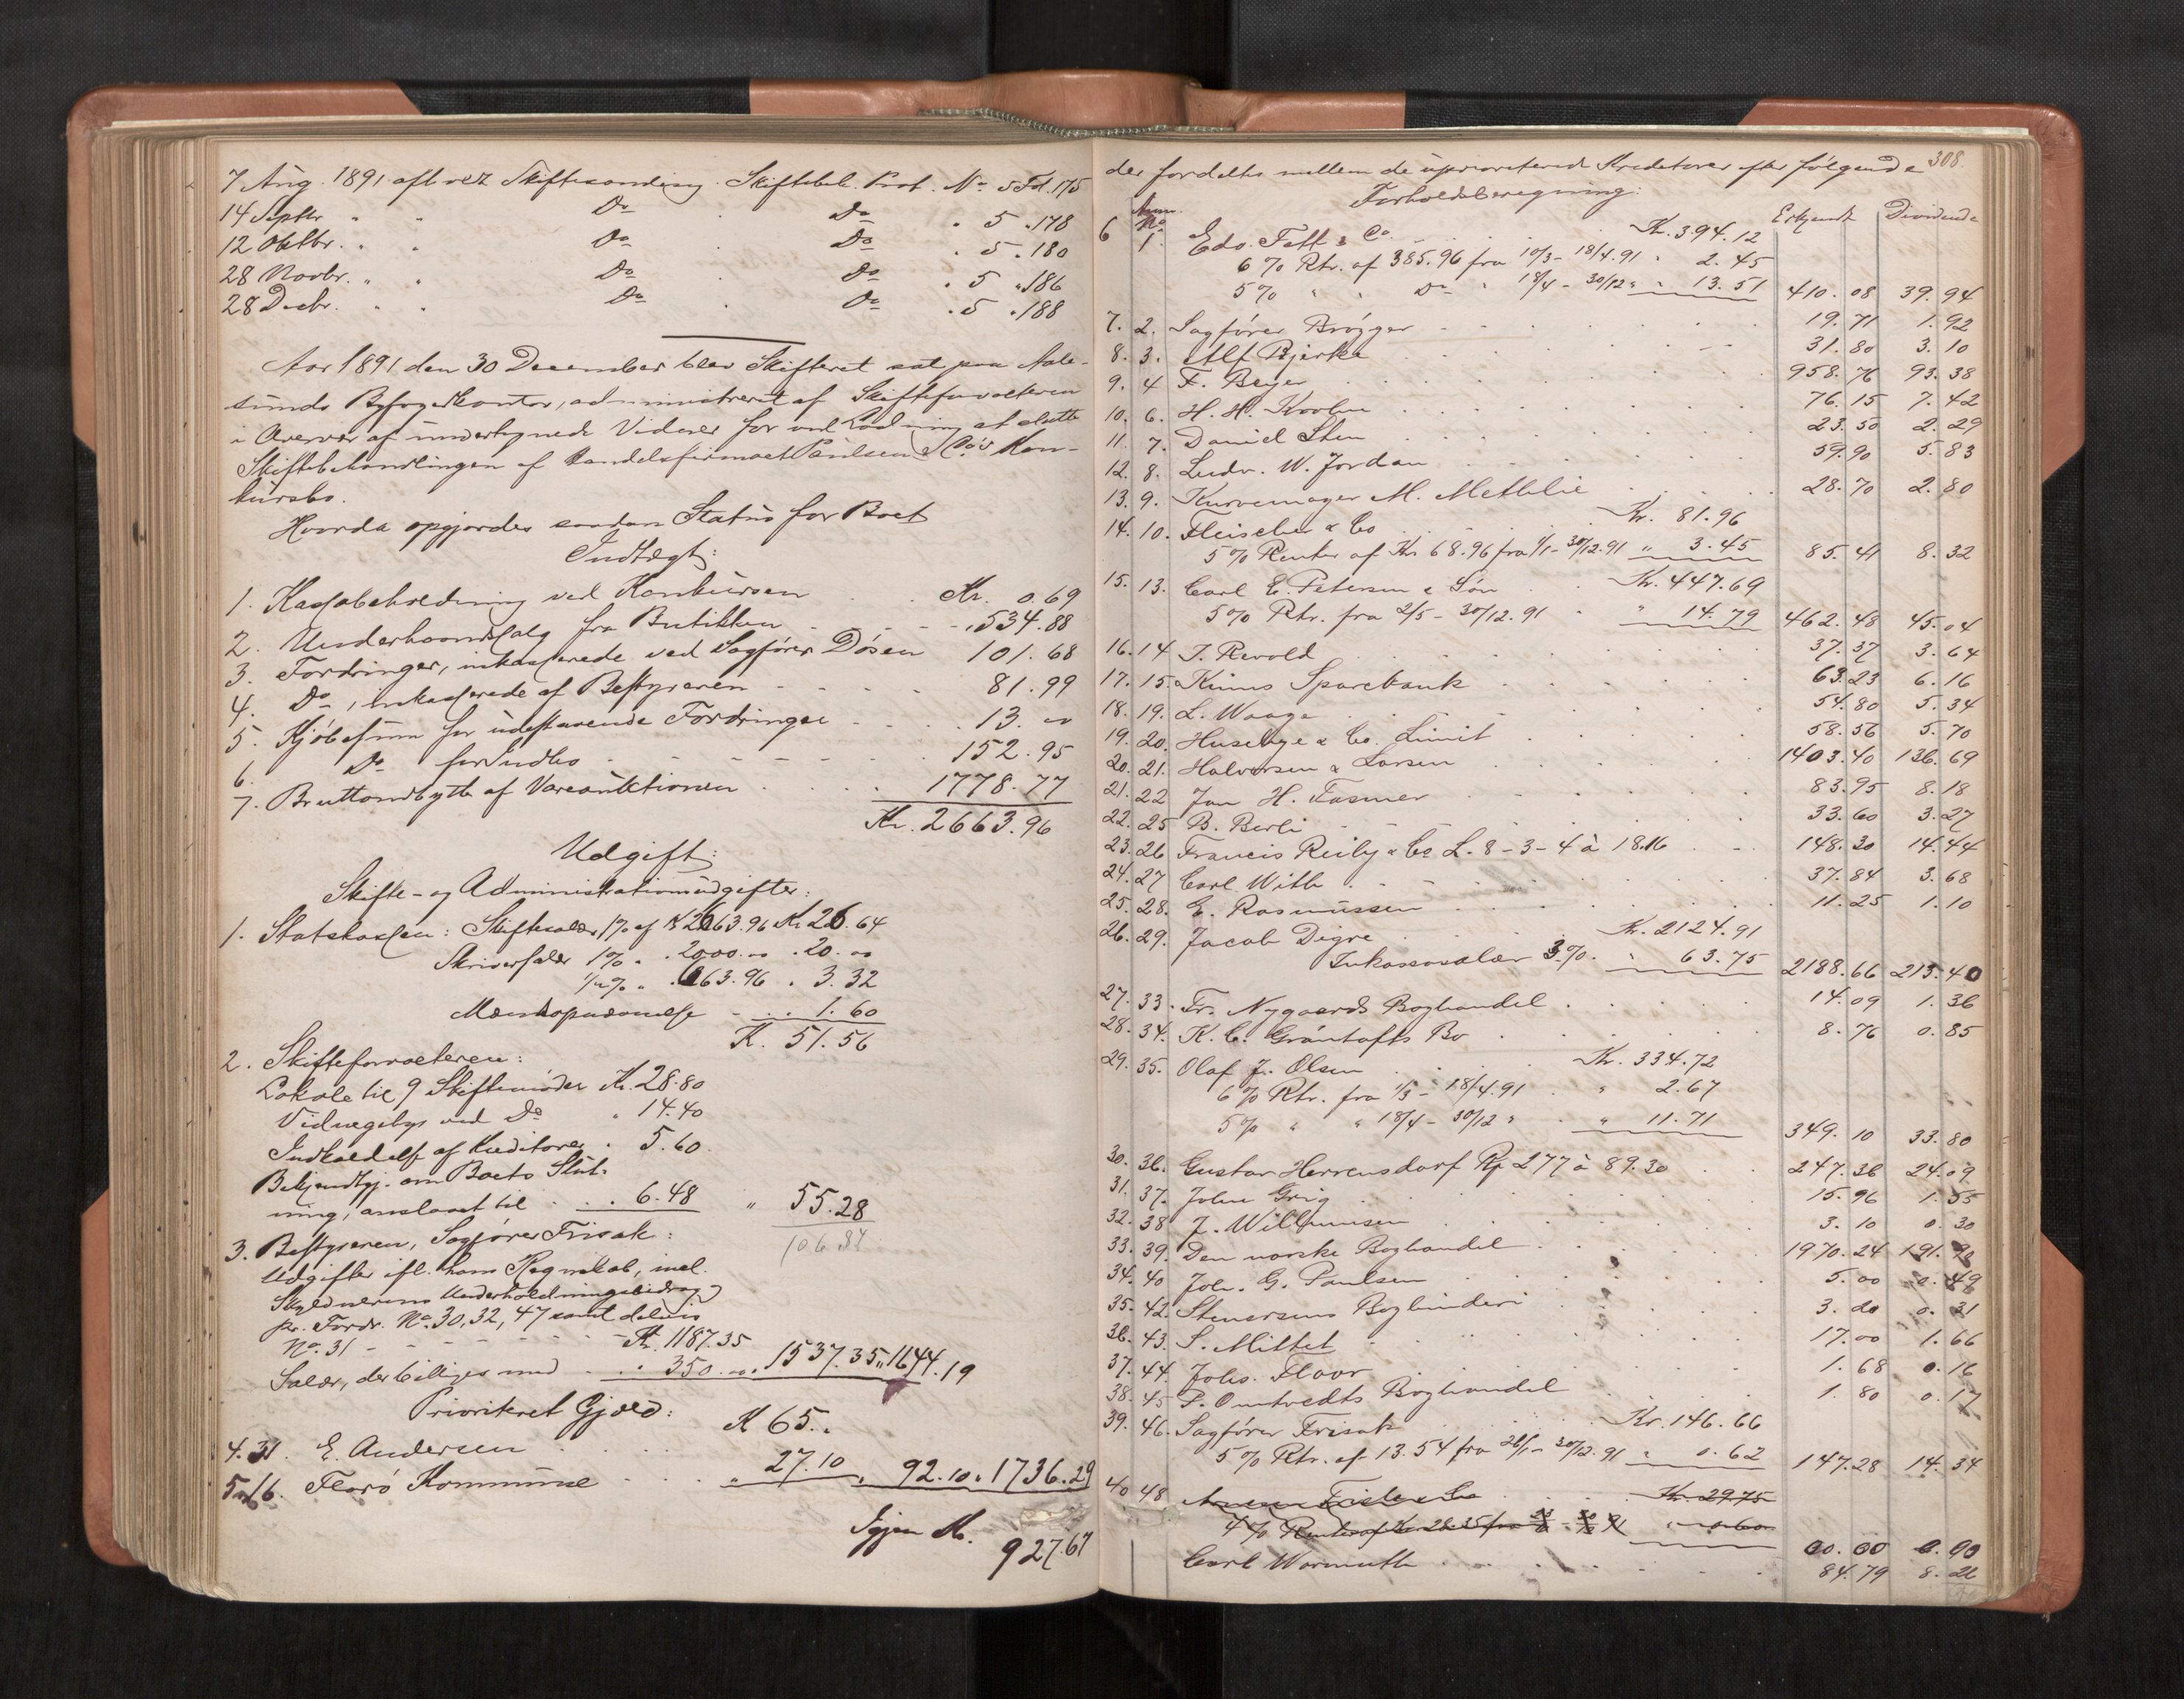 7 Aug. 1891 afholdt Skiftesamling. Skiftebeh. Prot. No 5 Fol. 175
14 Septbr. " " Do . Do " 5 " 178
12 Oktbr. " " Do Do " 5 " 180
28 Novbr. " " Do Do " 5 " 186
28 Decbr. " " Do . Do " 5 " 188
Aar 1891 den 30 December blev Skifteret sat paa Aale-
sunds Byfogedkontor, administreret af Skifteforvalteren
i Overvær af undertegnede Vidner for ved Lodning at slutte
Skiftebehandlingen af Handelsfirmaet Paulsen & Co's Kon-
kursbo.
Hvorda opgjordes saadan Status for Boet
Indtægt:
1. Kassabeholdning ved Konkursen . . Kr. 0.69
2. Underhaandssalg fra Butikken - - - " 534.88
3. Fordringer, inkasserede ved Sagfører Døsen 101.68
4. Do , inkasserede af Bestyreren - - - - 81.99
5. Kjøbesum for udestaaende Fordringer - . . . 13. "
6. Do for Indbo - - - - - - 152.95
7. Bruttoudbytte af Vareauktionen . . . . 1778.77
Kr. 2663.96
Udgift:
Skifte- og Administrationsudgifter:
1. Statskassen: Skiftesalær 1% af K 2663.96 Kr 26.64
Skriversalær 1% " . 2000. " . 20. "
1/2% " . 663.96 " 3.32
. . . 1.60
K. 51.56
2. Skifteforvalteren:
Lokale til 9 Skiftemøder Kr. 28.80
Vidnegebyr ved Do " 14.40
Indkaldelse af Kreditorer . 5.60
Bekjendtgj. om Boets Slut-
ning, anslaaet til . . . 6.48 " 55.28
106 84
3. Bestyreren, Sagfører Frisak:
Udgifter ifl. hans Regnskab, incl.
Skyldnerens Underholdningsbidrag
pr. Fordr. No. 30, 32, 47 samt delvis
No. 31 - - - - - - Kr. 1187.35
Salær, der billiges med . . . 350. " . 1537.35 " 1644.19
Prioriteret Gjæld:
4. 31. E. Andersen . . . . K 65. "
5. 16. Florø Kommune . . . " 27.10 " 92.10 " 1736.29
Igjen Kr. 927.67
308.
der fordeltes mellem de uprioriterede Kreditorer efter følgende
Forholdsberegning:
Anm. No Erkjendt Dividende
6 1. Edv. Fett & Co. . . . Kr. 394.12
6% Rtr. af 385.96 fra 10/3 - 18/4.91 " 2.45
5% " " Do " 18/4 - 30/12 " " 13.51 410.08 39.94
7. 2. Sagfører Brøgger - - - 19.71 1.92
8. 3. Alf Bjerke 31.80 3.10
9. 4 F. Beyer 958.76 93.38
10. 6. H. H. 76.15 7.42
11. 7. Daniel Sten 23.50 2.29
12. 8. Ludv. W. Jordan 59.90 5.83
13. 9. Kurvemager M. Methlie 28.70 2.80
14. 10. Fleischer & Co . . . Kr. 81.96
5% Renter af Kr 68.96 fra 1/1 - 30/12.91 " 3.45 85.41 8.32
15. 13. Carl E. Petersen & Søn . . Kr. 447.69
5% Rtr. fra 2/5 - 30/12.91 " " 14.79 462.48 45.04
16. 14 J. Revold 37.37 3.64
17. 15. Kinns Sparebank 63.23 6.16
18. 19. L. Waage 54.80 5.34
19. 20. Husebye & Co. Limit 58.56 5.70
20. 21. Halvorsen & Larsen 1403.40 136.69
21. 22 Jan H. Fasmer 83.95 8.18
22. 25 B. Berli 33.60 3.27
23. 26 Francis Reily & Co L. 8-3-4 à 18.16 148.30 14.44
24. 27 Carl With 37.84 3.68
25. 28. E. Rasmussen 11.25 1.10
26. 29. Jacob Digre . . . Kr. 2124.91
Inkassosalær 3%. " 63.75 2188.66 213.40
27. 33. Fr. Nygaards Boghandel 14.09 1.36
28. 34. K. C. Grøntofts Bo 8.76 0.85
29. 35. Olaf J. Olsen . . . Kr. 334.72
6% Rtr. fra 1/3 - 18/4.91 " 2.67
5% " " 18/4 - 30/12 " " 11.71 349.10 33.80
30. 36. Gustav Herrensdorf Rp 277 à 89.30 247.36 24.09
31. 37. John Grieg 15.96 1.55
32. 38 J. Willumsen 3.10 0.30
33. 39. Den norske Boghandel 1970.24 191.90
34. 40 Joh. G. Paulsen 5.00 0.49
35. 42. Stenersens Bogbinderi 3.20 0.31
36. 43. S. Mittet 17.00 1.66
37. 44. Johs. Floor 1.68 0.16
38. 45 P. Omtvedts Boghandel 1.80 0.17
39. 46. Sagfører Frisak . . . Kr. 146.66
5% Rtr. af 13.54 fra 26/1 - 30/12.91 " 0.62 147.28 14.34
40 48 Kr. 29.75
4% Renter af Kr. 28.35 fra " 0.60 00.00 0.00
Carl Warmuth 84.79 8.26